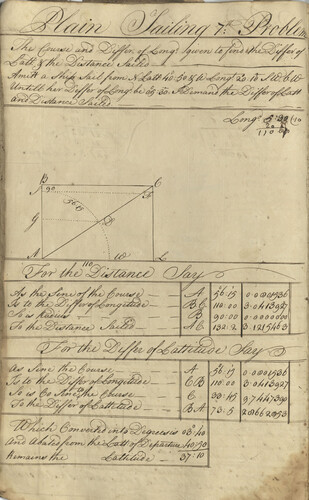 Plain Sailing 7th Problem
The Course and Differ. of Longe. given to find the Differ of
Latt. & the Distance Sailed
Admitt a Ship Sail from N Latt 40:50 & W Longe 20:15 S W b W
Untill her Differ of Longe be 5:30. I Demand the Differ of Latt
and Distance Sailed
Longe. 5:30
110
B
C
90
56:15
G
D
A
110
L
For the Distance Say
As the Sine of the Course A 56:15
Is to the Differ of Longitude B C 110:00 3.0413927
So is Radius B 90:00 0.0000000
To the Distance Sailed A C 132:2 3.1215463
For the Differ of Lattitude Say
As Sine the Course A 56:15
Is to the Differ of Longitude C B 110:00 3.0413927
So is Co Sine the Course C 33:45 9.7447390
To the Differ of Lattitude B A 73:5
Which Converted into Degrees is 03:40
And Abated from the Latt of Departure 40:50
Remains the Lattitude 37:10